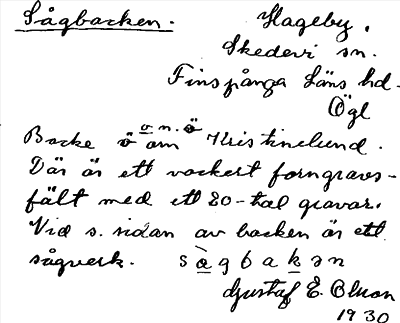 Sågbacken.
Hageby,
Skedevi sn.
Finspånga Läns hd.
Ögl
Backe ö om Kristinelund.
o. n. ö
Där är ett vackert forngravs-
fält med ett 80-tal gravar.
Vid s. sidan av backen är ett
sågverk. sàgbakən
Gustaf E. Olsson
1930